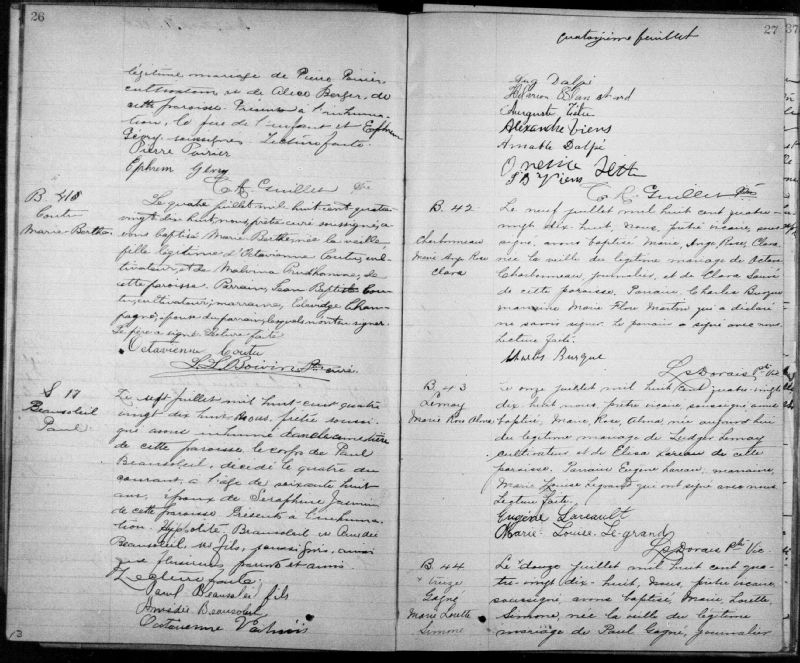 26
légitime mariage de Pierre Poirier
cultivateur et de Alice Berger, de
cette paroisse. Présents à l'inhuma-
tion, le père de l'enfant et Ephrem
Gény soussignés. Lecture faite.
Pierre Poirier
Ephrem Gény
B 41
Coutu
Marie-Berthe
Le quatre juillet mil huit cent quatre
vingt dix huit, nous prêtre curé soussigné, a-
vons baptisé Marie Berthe, née la veille,
fille légitime d'Octavienne Coutu, cul-
tivateur, et de Malvina Prudhomme, de
cette paroisse. Parrain, Jean Bpte Cou-
tu, cultivateur, marraine, Edwidge Cham-
pagne, épouse du parrain, lesquels n'ont su signer.
Le père a signé. Lecture faite
Octavienne Coutu
Ptre curé.
S 17
Beausoleil
Paul
Le sept juillet mil huit-cent quatre
vingt dix huit nous prêtre soussi-
gné avons inhumé dans le cimetière
de cette paroisse le corps de Paul
Beausoleil, décédé le quatre du
courant, à l'âge de soixante huit
ans, époux de Séraphine Jasmin
de cette paroisse. Présents à l'inhuma-
tion Hyppolite Beausoleil et Amédée
Beausoleil, ses fils, soussignés, ainsi
que plusieurs parents et amis.
Lecture faite.
Paul Beausoleil fils
Amédé Beausoleil
Octavienne
27
Quatorzième feuillet
Aug Dalpé
Auguste Tétu
Alexandre Viens
Amable Dalpé
Viens
B. 42
Charbonneau
Marie Ange Rose
Clara
Le neuf juillet mil huit cent quatre-
vingt dix huit, Nous, prêtre vicaire, sous-
signé, avons baptisé Marie, Ange, Rose, Clara
née la veille du légitime mariage de Octave
Charbonneau, journalier, et de Clara
de cette paroisse. Parrain Charles Burque
marraine Marie Flore Martin qui a déclaré
ne savoir signer. Le parrain a signé avec nous.
Lecture faite.
Charles Burque
Dorais Ptre Vic
B. 43
Lemay
Marie Rose Alma
Le onze juillet mil huit cent quatre-vingt
dix-huit nous, prêtre vicaire, soussigné avons
baptisé, Marie, Rose, Alma, née aujourd'hui
du légitime mariage de Ludger Lemay
cultivateur et de Elisa Lareau de cette
paroisse. Parrain Eugène Lareau, marraine,
Marie Louise Legrand qui ont signé avec nous.
Lecture faite.
Eugène
Marie-Louise Legrand
Dorais Ptre Vic.
B. 44
Gagné
Marie Lorette
Simone
Le douze juillet mil huit cent qua-
tre-vingt dix-huit, Nous, prêtre vicaire,
soussigné avons baptisé, Marie, Lorette,
Simone, née la veille du légitime
mariage de Paul Gagné, journalier